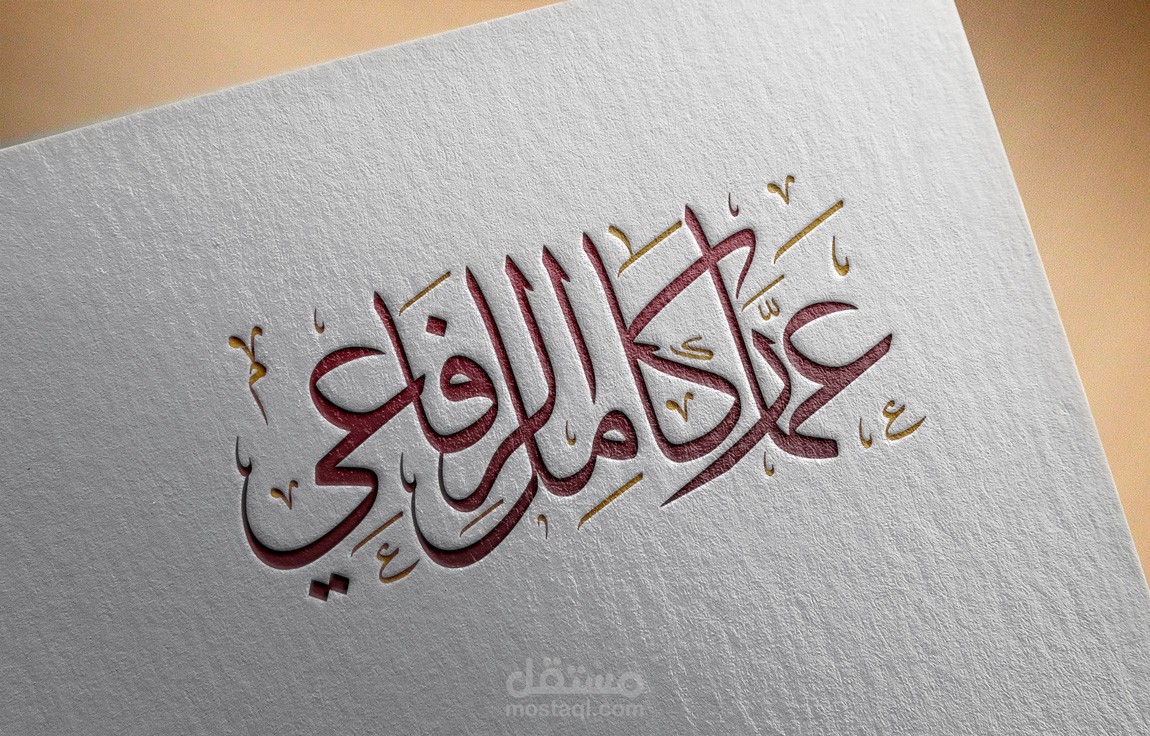 عمَّار كامِل الرفاعي
مستقل
mostaql.com